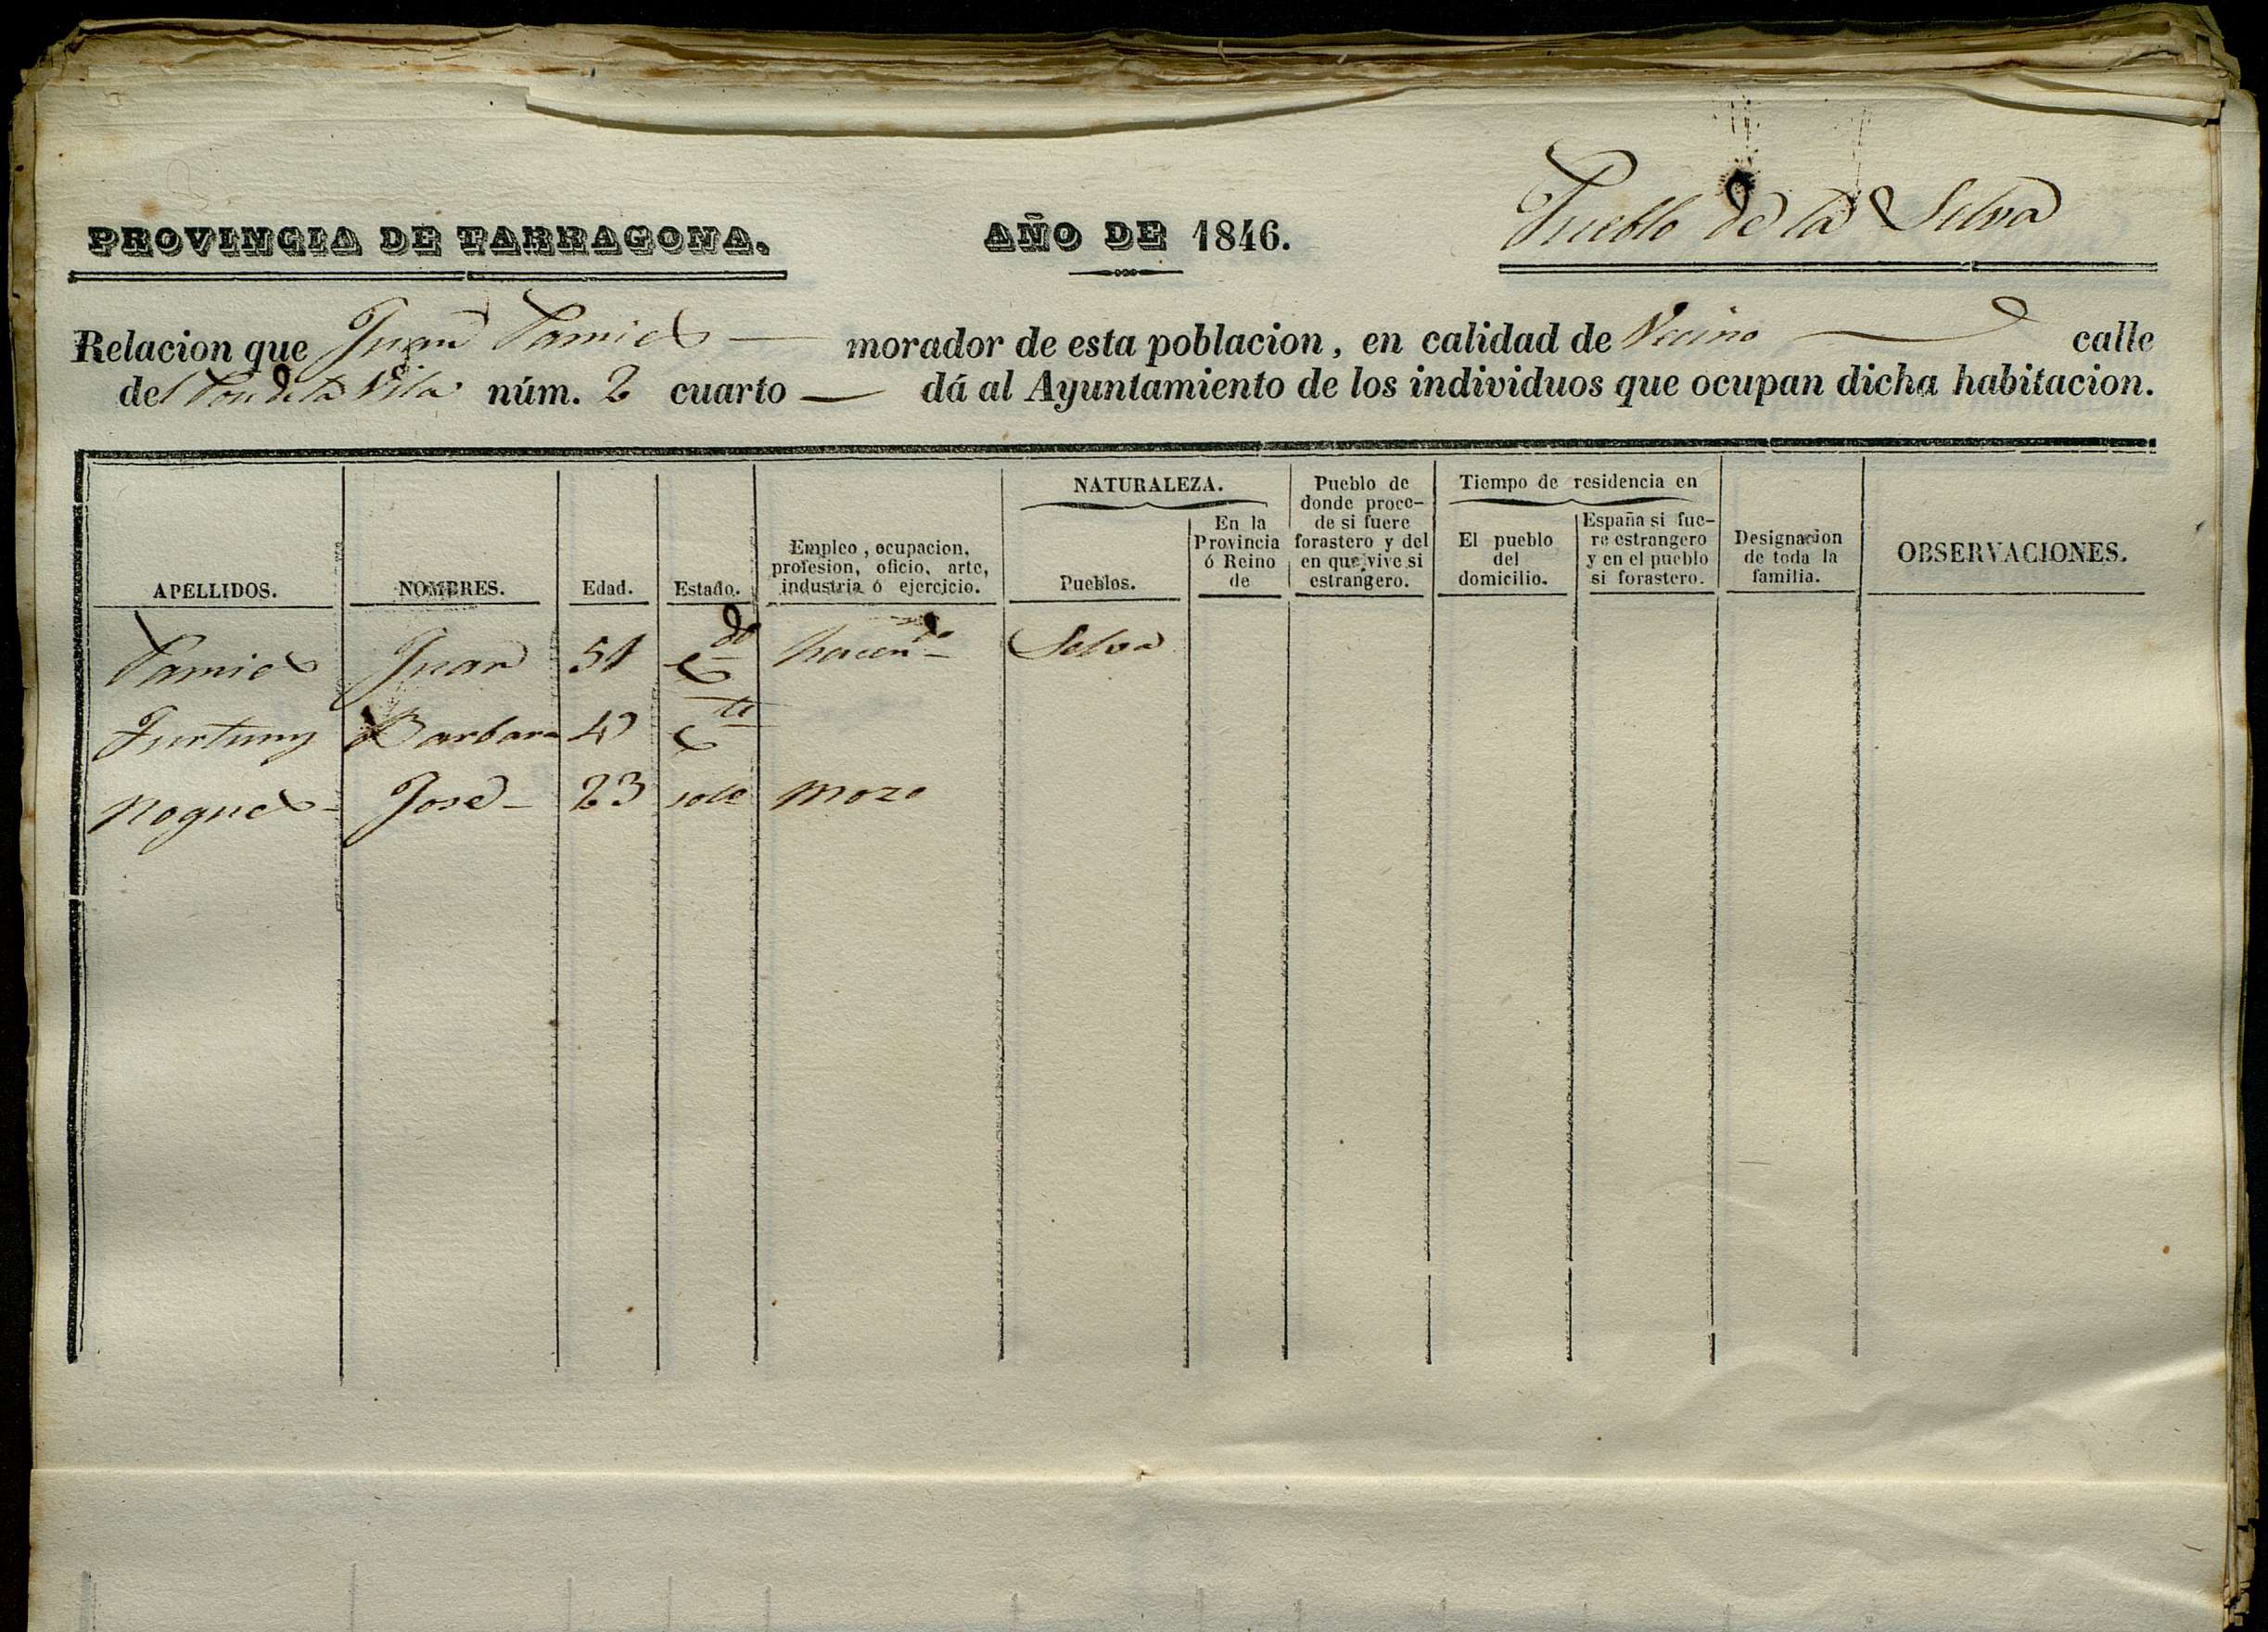 PROVINCIA DE TARRAGONA.
AÑO DE 1846.
Pueblo de la Selva
Relacion que Juan Tamies — morador de esta poblacion, en calidad de Vecino — calle
del de la Vila núm. 2 cuarto — dá al Ayuntamiento de los individuos que ocupan dicha habitacion.
APELLIDOS.
NOMBRES.
Edad.
Estado.
Empleo, ocupacion,
profesion, oficio, arte,
industria ó ejercicio.
NATURALEZA.
Pueblos.
En la
Provincia
ó Reino
de
Pueblo de
donde proce-
de si fuere
forastero y del
en que vive si
estrangero.
Tiempo de residencia en
El pueblo
del
domicilio.
España si fue-
re estrangero
y en el pueblo
si forastero.
Designacion
de toda la
familia.
OBSERVACIONES.
Tamies Juan 51 Cdo hacendo Selva
Furtuny Barbara Cta
Nogues - Jose - 23 solo mozo